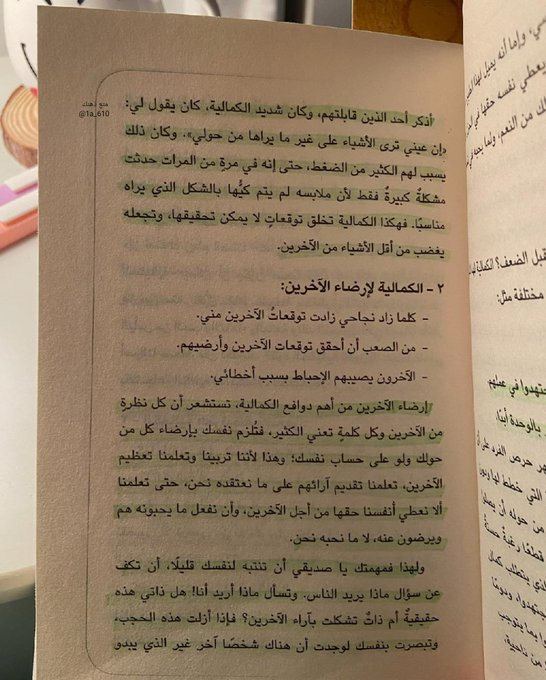 متع ذهنك
@1a_610
أذكر أحد الذين قابلتهم، وكان شديد الكمالية، كان يقول لي:
«إن عيني ترى الأشياء على غير ما يراها من حولي». وكان ذلك
يسبب لهم الكثير من الضغط، حتى إنه في مرةٍ من المرات حدثت
مشكلةٌ كبيرةٌ فقط لأن ملابسه لم يتم كيُّها بالشكل الذي يراه
مناسبًا. فهكذا الكمالية تخلق توقعاتٍ لا يمكن تحقيقها، وتجعله
يغضب من أقل الأشياء من الآخرين.
٢ - الكمالية لإرضاء الآخرين:
- كلما زاد نجاحي زادت توقعاتُ الآخرين مني.
- من الصعب أن أحقق توقعات الآخرين وأرضيهم.
- الآخرون يصيبهم الإحباط بسبب أخطائي.
إرضاء الآخرين من أهم دوافع الكمالية، تستشعر أن كل نظرةٍ
من الآخرين وكل كلمةٍ تعني الكثير، فتُلزم نفسك بإرضاء كل من
حولك ولو على حساب نفسك؛ وهذا لأننا تربينا وتعلمنا تعظيم
الآخرين، تعلمنا تقديم آرائهم على ما نعتقده نحن، حتى تعلمنا
ألا نعطي أنفسنا حقها من أجل الآخرين، وأن نفعل ما يحبونه هم
ويرضون عنه، لا ما نحبه نحن.
ولهذا فمهمتك يا صديقي أن تنتبه لنفسك قليلًا، أن تكف
عن سؤال ماذا يريد الناس. وتسأل ماذا أريد أنا! هل ذاتي هذه
حقيقيةٌ أم ذاتٌ تشكلت بآراء الآخرين؟ فإذا أزلت هذه الحجب،
وتبصرت بنفسك لوجدت أن هناك شخصًا آخر غير الذي يبدو
وإما أنه يميل لهذا
يعطي نفسه حقها في
من النعم، ولما
الضعف؟
مختلفة مثل:
في عملهم
بالوحدة أبدًا.
حرص الفرد على
التي خطط لها
من حوله أن
قطعًا رغبةٌ
الذي يتطلب كمال